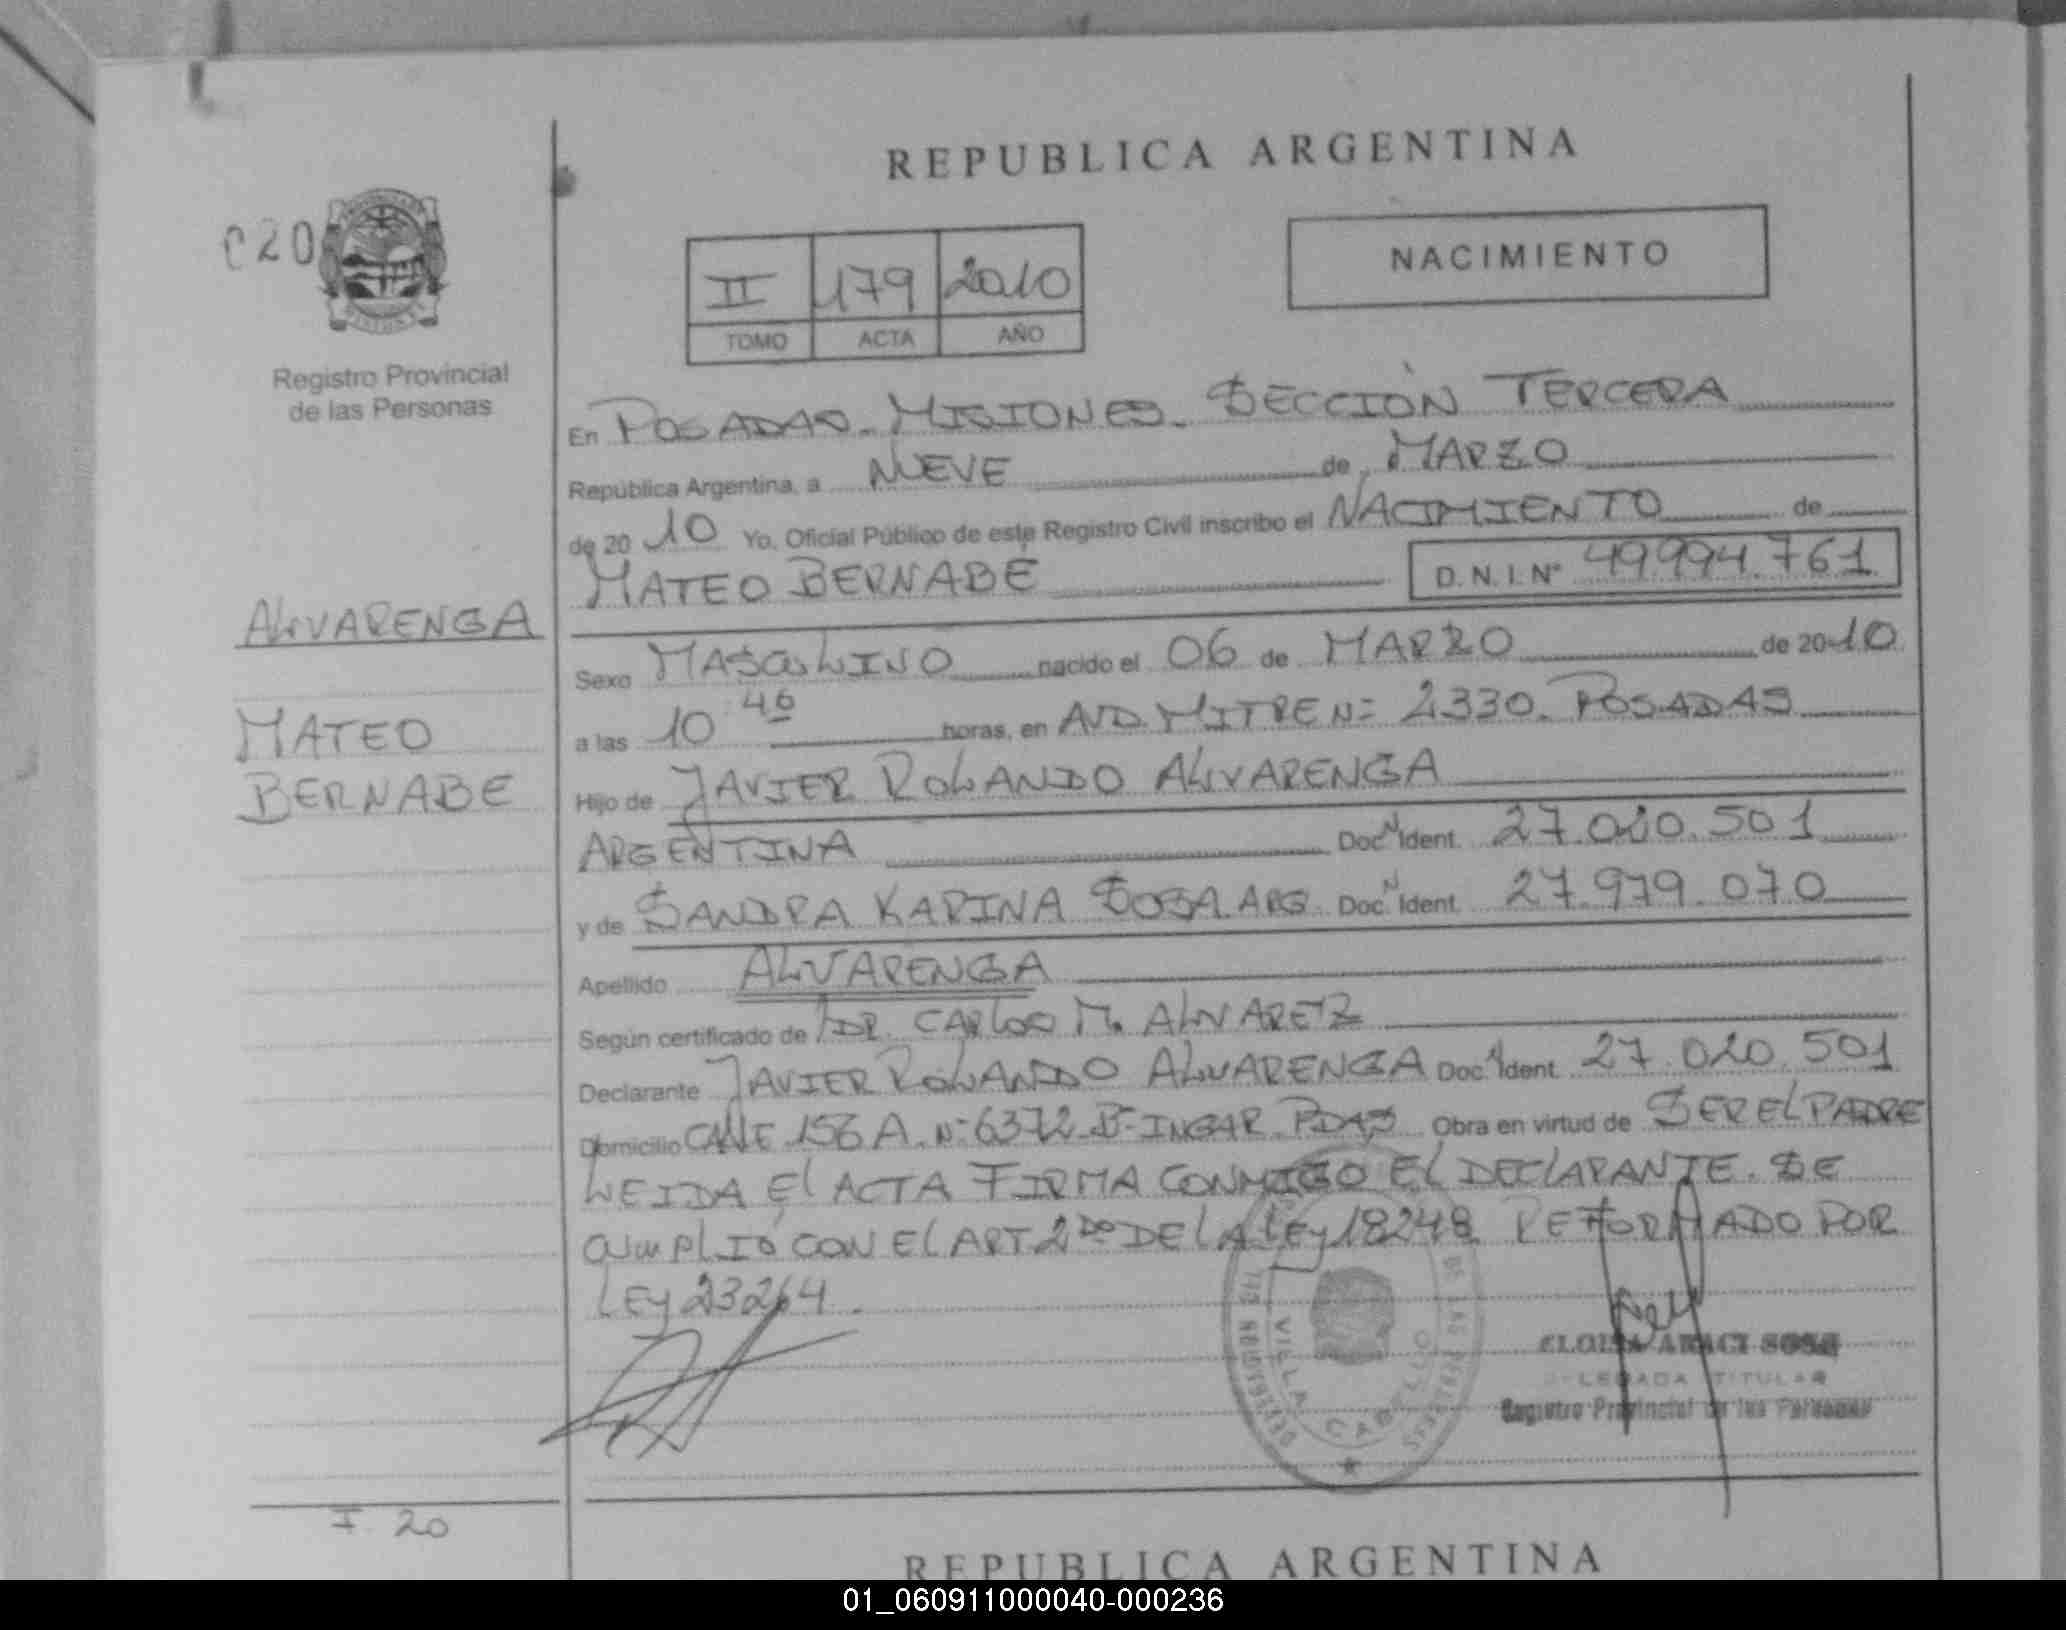 REPUBLICA ARGENTINA
020
II 179 2010
TOMO ACTA AÑO
NACIMIENTO
Registro Provincial
de las Personas
En POSADAS - MISIONES - SECCIÓN TERCERA
República Argentina, a NUEVE de MARZO
de 2010 Yo, Oficial Público de este Registro Civil inscribo el NACIMIENTO de
MATEO BERNABÉ D.N.I. Nº 49.994.761
ALVARENGA
Sexo MASCULINO nacido el 06 de MARZO de 2010
MATEO
a las 10 40 horas, en AVD. MITRE Nº 2330. POSADAS
BERNABE
Hijo de JAVIER ROLANDO ALVARENGA
ARGENTINA Doc. N Ident. 27.020.501
y de SANDRA KARINA SOSA. ARG. Doc. N Ident. 27.979.070
Apellido ALVARENGA
Según certificado de DR. CARLOS M. ALVAREZ
Declarante JAVIER ROLANDO ALVARENGA Doc. N Ident. 27.020.501
Domicilio CALLE 156 A. Nº 6372 Bº INGAR. PDAS Obra en virtud de SER EL PADRE
LEIDA El ACTA FIRMA CONMIGO EL DECLARANTE. SE
CUMPLIÓ CON El ART. 2do DE LA LEY 18248 REFORMADO POR
LEY 23264.
VILLA CABELLO
DE LAS PERSONAS
ELOISA ARACI SOSA
DELEGADA TITULAR
Registro Provincial de las Personas
F. 20
REPUBLICA ARGENTINA
01_060911000040-000236